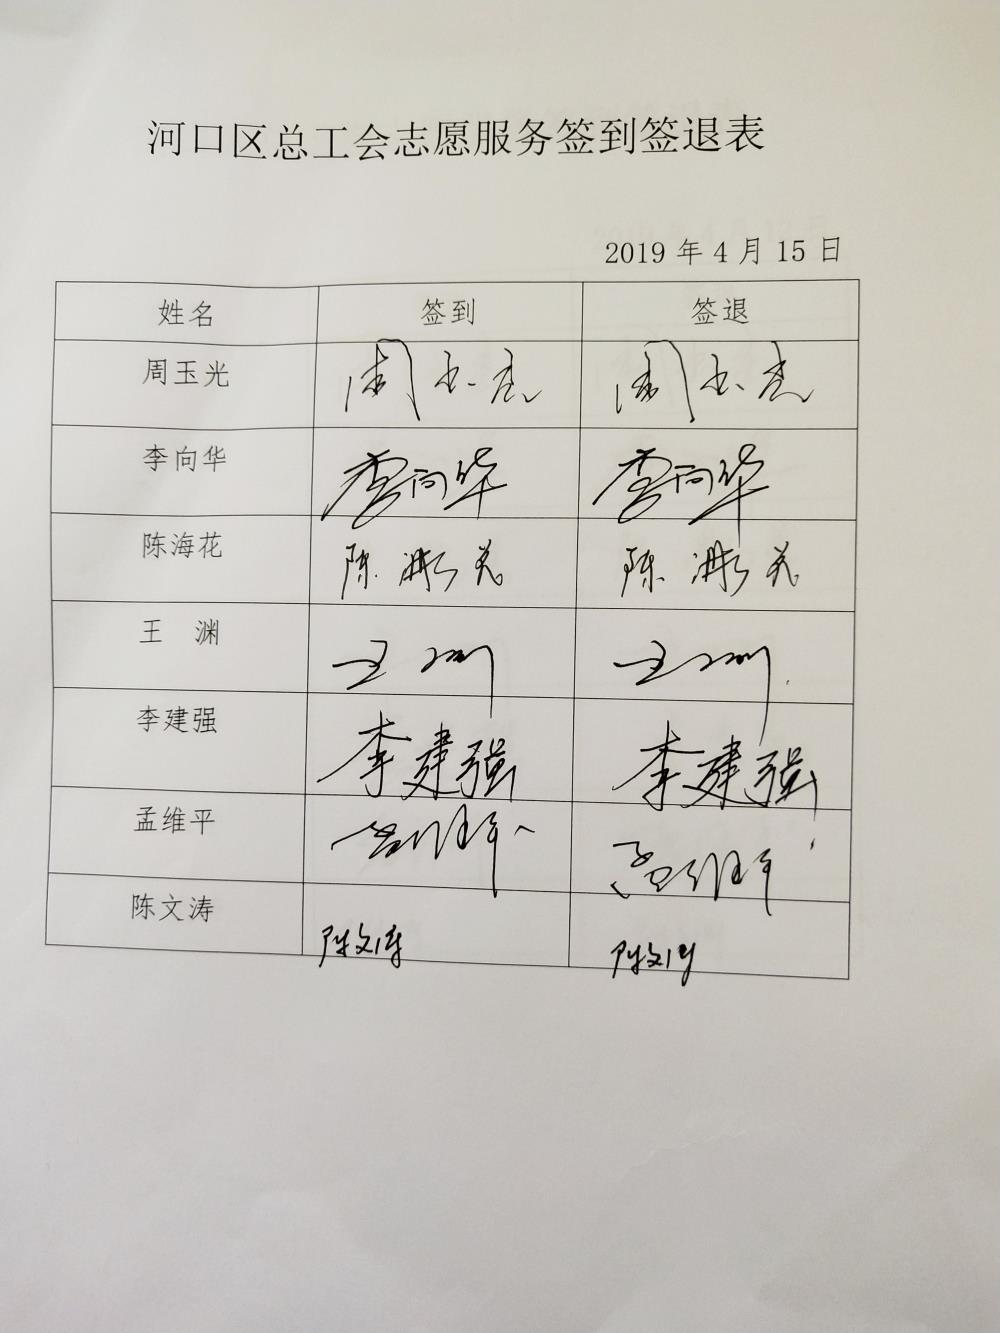 河口区总工会志愿服务签到签退表
2019 年 4 月 15 日
姓名 签到 签退
周玉光 周玉光 周玉光
李向华 李向华 李向华
陈海花 陈海花 陈海花
王 渊 王渊 王渊
李建强 李建强 李建强
孟维平 孟维平 孟维平
陈文涛 陈文涛 陈文涛